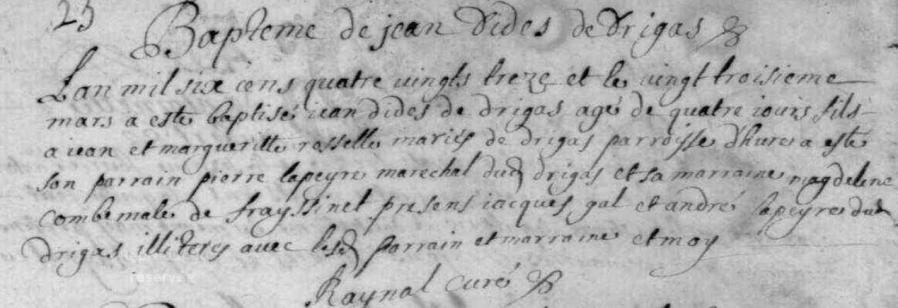 23
Bapteme de jean Dides de Drigas
Lan mil six cens quatre vingts treze et le vingt troisieme
mars a esté baptisé iean dides de drigas agé de quatre iours fils
a iean et margueritte rosselle mariés de drigas parroisse dhures a esté
son parrain pierre lapeyre marechal dud drigas et sa marraine magdelene
combemale de frayssinet presens iacques gal et andré lapeyre dud
drigas illiterés avec lesd parrain et marraine et moy
Raynal curé